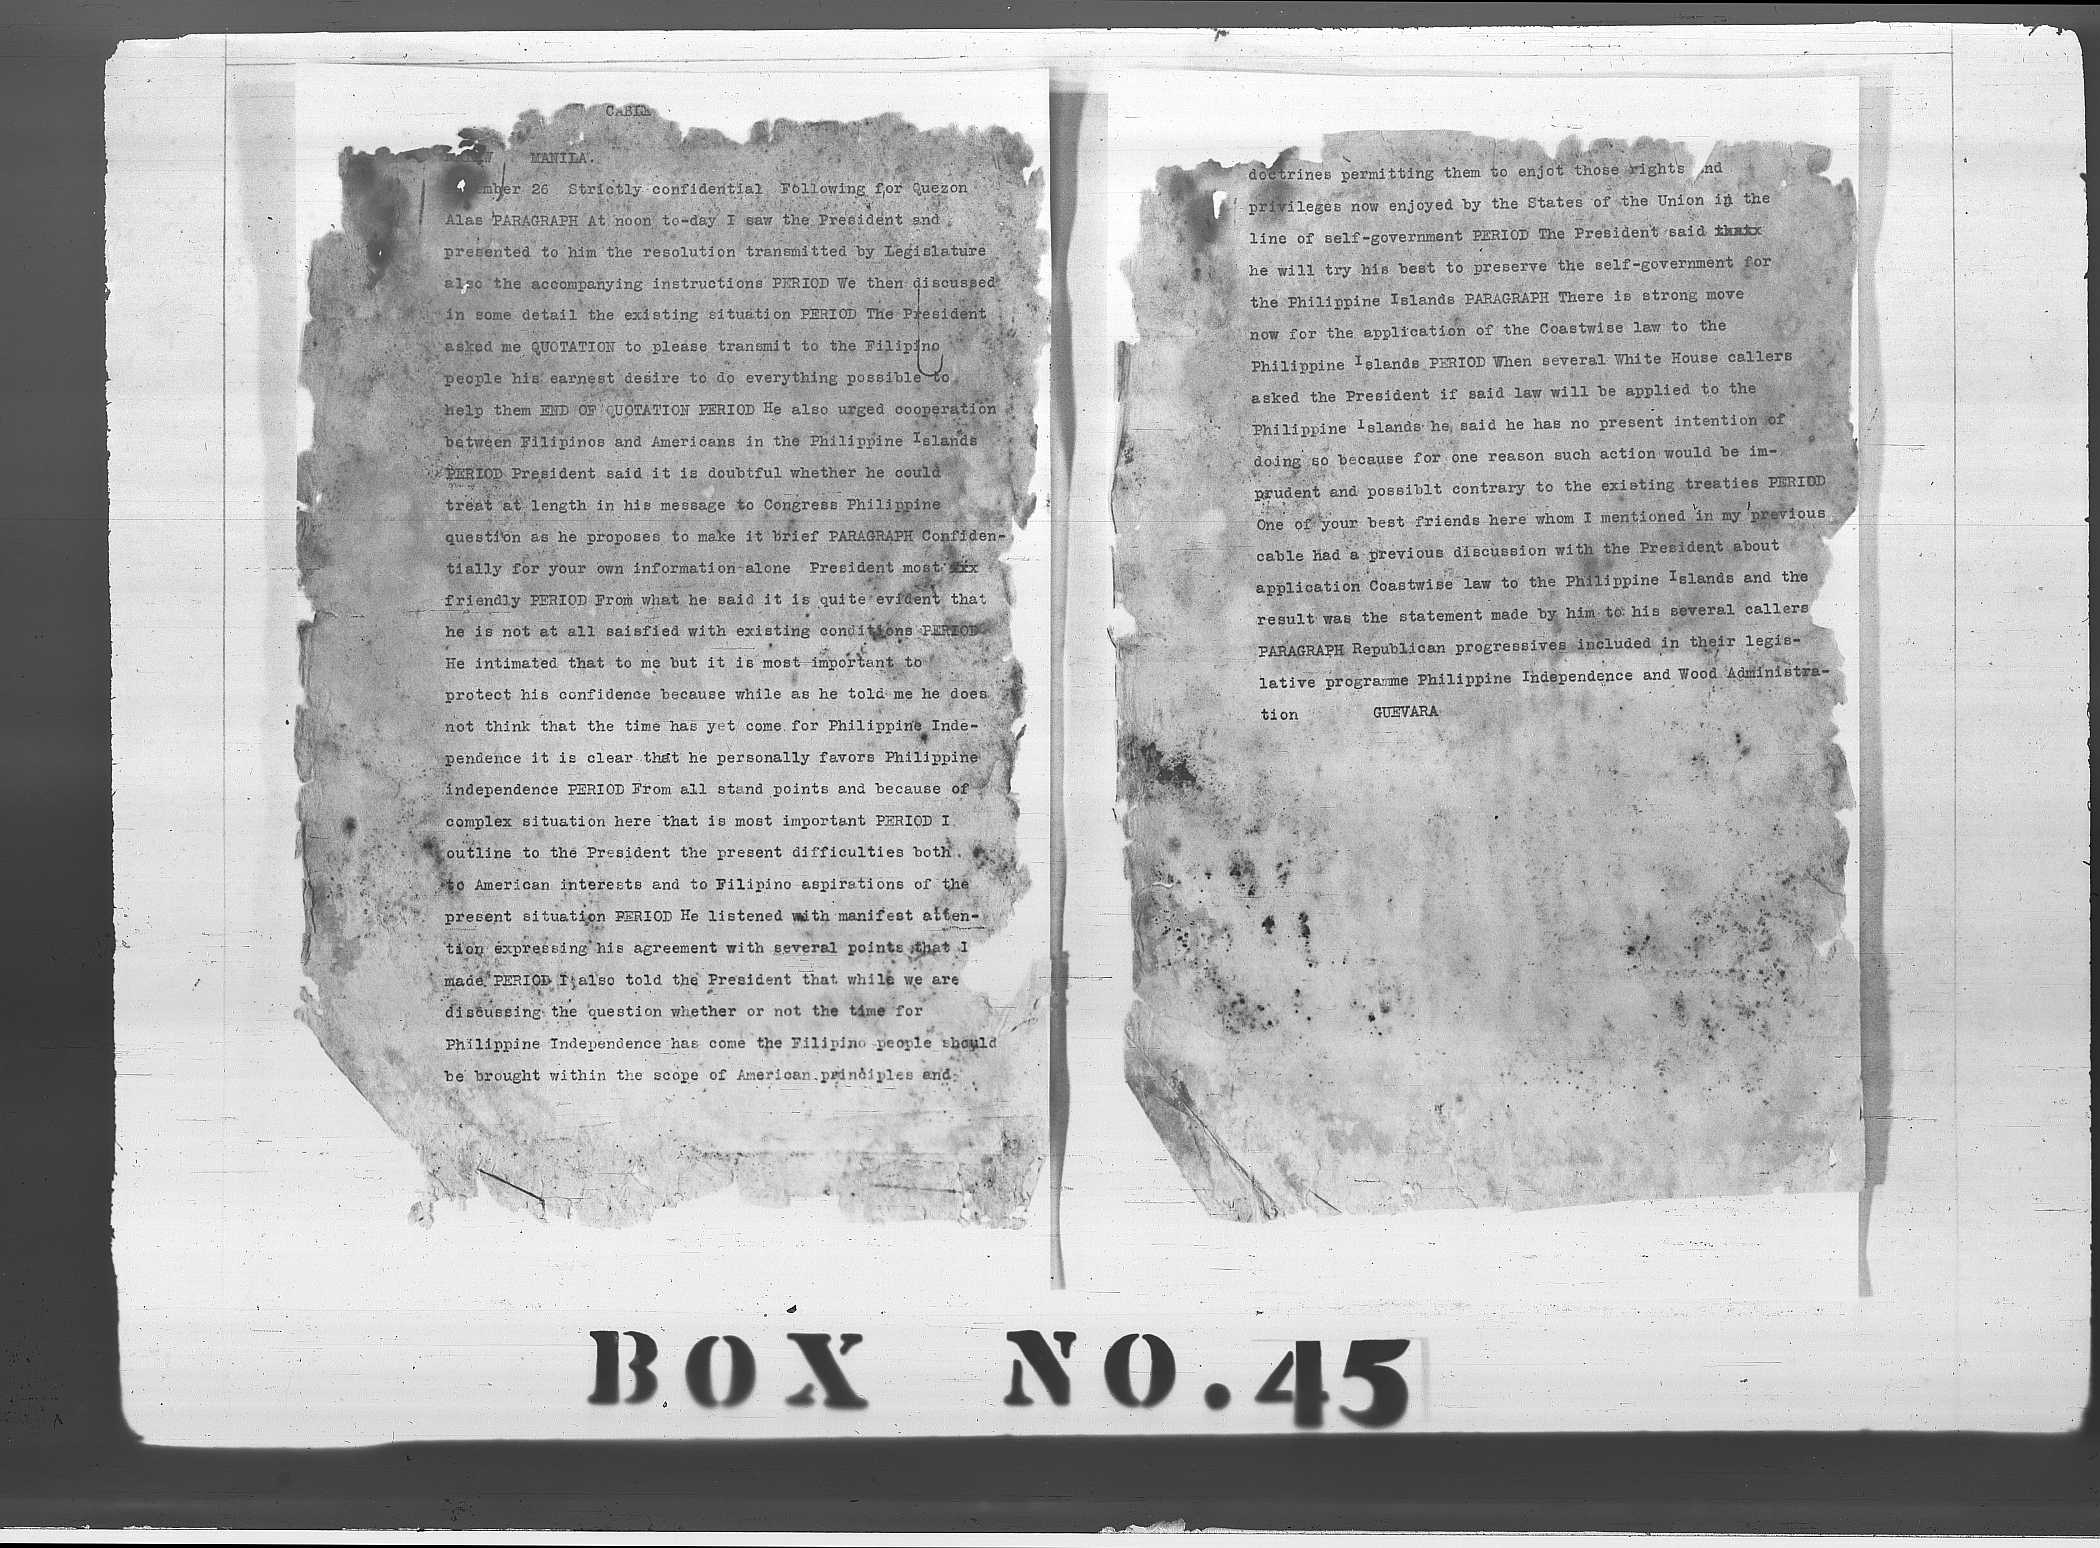 CABLE
MANILA.
mber 26 Strictly confidential Following for Quezon
Alas PARAGRAPH At noon to-day I saw the President and
presented to him the resolution transmitted by Legislature
also the accompanying instructions PERIOD We then discussed
in some detail the existing situation PERIOD The President
asked me QUOTATION to please transmit to the Filipino
people his earnest desire to do everything possible to
help them END OF QUOTATION PERIOD He also urged cooperation
between Filipinos and Americans in the Philippine Islands
PERIOD President said it is doubtful whether he could
treat at length in his message to Congress Philippine
question as he proposes to make it brief PARAGRAPH Confiden-
tially for your own information alone President most xxx
friendly PERIOD From what he said it is quite evident that
he is not at all saisfied with existing conditions PERIOD
He intimated that to me but it is most important to
protect his confidence because while as he told me he does
not think that the time has yet come for Philippine Inde-
pendence it is clear that he personally favors Philippine
independence PERIOD From all stand points and because of
complex situation here that is most important PERIOD I
outline to the President the present difficulties both
to American interests and to Filipino aspirations of the
present situation PERIOD He listened with manifest atten-
tion expressing his agreement with several points that I
made PERIOD I also told the President that while we are
discussing the question whether or not the time for
Philippine Independence has come the Filipino people should
be brought within the scope of American principles and
doctrines permitting them to enjot those rights nd
privileges now enjoyed by the States of the Union in the
line of self-government PERIOD The President said thatx
he will try his best to preserve the self-government for
the Philippine Islands PARAGRAPH There is strong move
now for the application of the Coastwise law to the
Philippine Islands PERIOD When several White House callers
asked the President if said law will be applied to the
Philippine Islands he said he has no present intention of
doing so because for one reason such action would be im-
prudent and possiblt contrary to the existing treaties PERIOD
One of your best friends here whom I mentioned in my previous
cable had a previous discussion with the President about
application Coastwise law to the Philippine Islands and the
result was the statement made by him to his several callers
PARAGRAPH Republican progressives included in their legis-
lative programme Philippine Independence and Wood Administra-
tion GUEVARA
BOX NO. 45